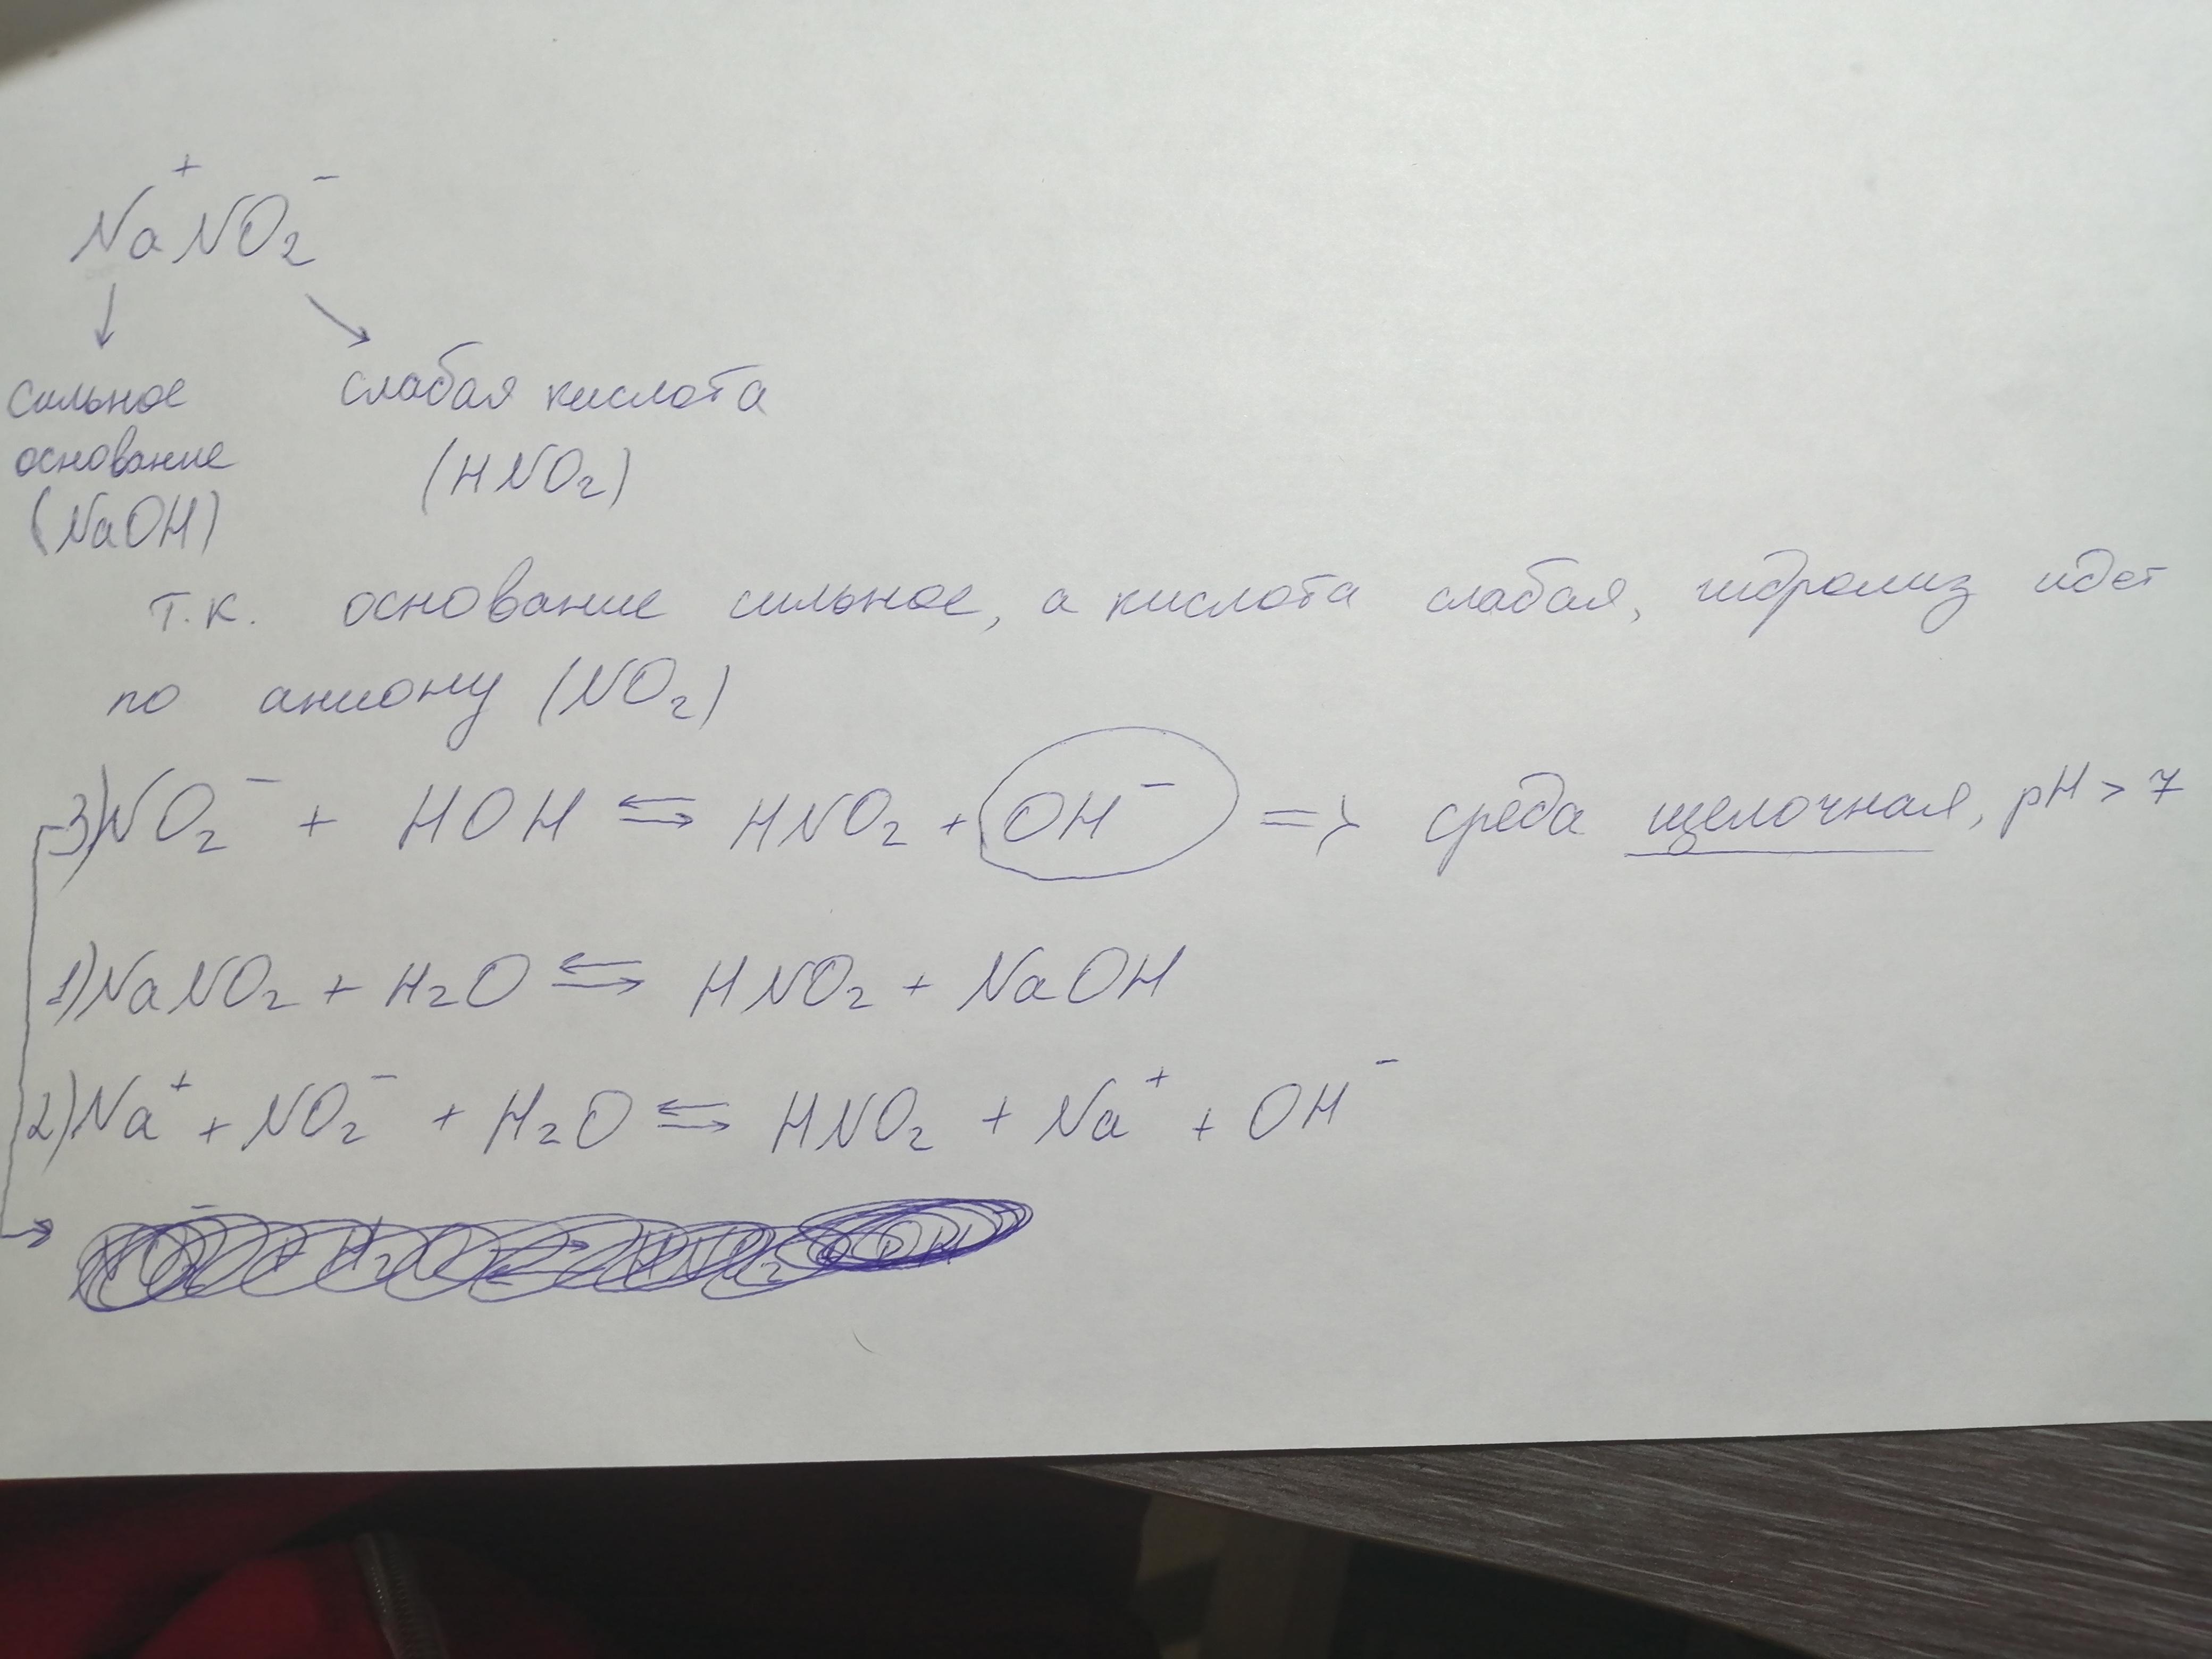 Na⁺NO₂⁻
сильное основание (NaOH)
слабая кислота (HNO₂)
т.к. основание сильное, а кислота слабая, гидролиз идет
по аниону (NO₂)
3) NO₂⁻ + HOH ⇆ HNO₂ + OH⁻ => среда щелочная, pH > 7
1) NaNO₂ + H₂O ⇆ HNO₂ + NaOH
2) Na⁺ + NO₂⁻ + H₂O ⇆ HNO₂ + Na⁺ + OH⁻